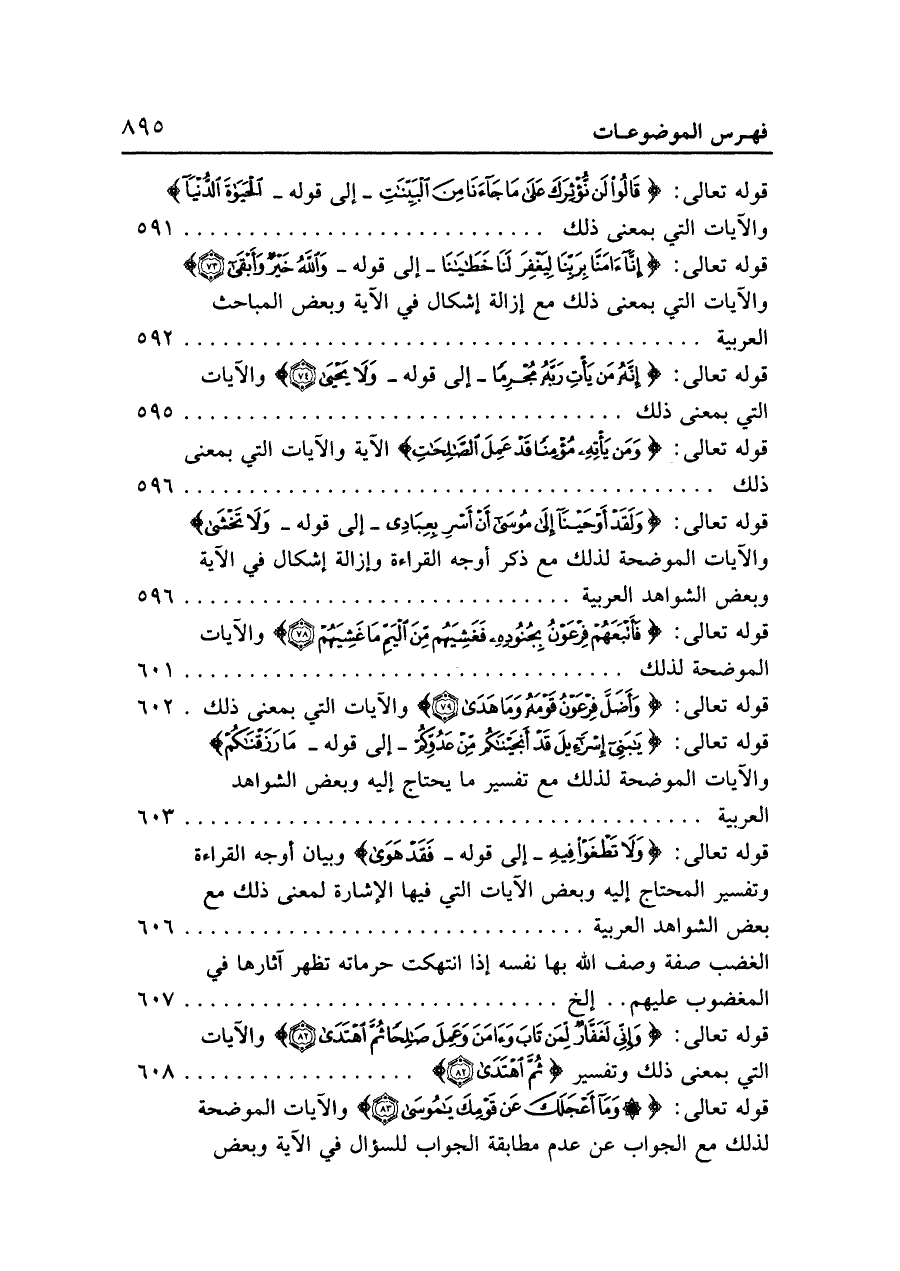 فهرس الموضوعات ٨٩٥
قوله تعالى: ﴿ قَالُوا۟ لَن نُّؤْثِرَكَ عَلَىٰ مَا جَآءَنَا مِنَ ٱلْبَيِّنَٰتِ ـ إلى قوله ـ ٱلْحَيَوٰةَ ٱلدُّنْيَآ ﴾
والآيات التي بمعنى ذلك . . . . . . . . . . . . . . . . . . . . . . . . . . . . ٥٩١
قوله تعالى: ﴿ إِنَّآ ءَامَنَّا بِرَبِّنَا لِيَغْفِرَ لَنَا خَطَٰيَٰنَا ـ إلى قوله ـ وَٱللَّهُ خَيْرٌ وَأَبْقَىٰٓ ٧٣ ﴾
والآيات التي بمعنى ذلك مع إزالة إشكال في الآية وبعض المباحث
العربية . . . . . . . . . . . . . . . . . . . . . . . . . . . . . . . . . . . . . . . . ٥٩٢
قوله تعالى: ﴿ إِنَّهُۥ مَن يَأْتِ رَبَّهُۥ مُجْرِمًا ـ إلى قوله ـ وَلَا يَحْيَىٰ ٧٤ ﴾ والآيات
التي بمعنى ذلك . . . . . . . . . . . . . . . . . . . . . . . . . . . . . . . . . . ٥٩٥
قوله تعالى: ﴿ وَمَن يَأْتِهِۦ مُؤْمِنًا قَدْ عَمِلَ ٱلصَّٰلِحَٰتِ ﴾ الآية والآيات التي بمعنى
ذلك . . . . . . . . . . . . . . . . . . . . . . . . . . . . . . . . . . . . . . . . . ٥٩٦
قوله تعالى: ﴿ وَلَقَدْ أَوْحَيْنَآ إِلَىٰ مُوسَىٰٓ أَنْ أَسْرِ بِعِبَادِى ـ إلى قوله ـ وَلَا تَخْشَىٰ ﴾
والآيات الموضحة لذلك مع ذكر أوجه القراءة وإزالة إشكال في الآية
وبعض الشواهد العربية . . . . . . . . . . . . . . . . . . . . . . . . . . . . . . ٥٩٦
قوله تعالى: ﴿ فَأَتْبَعَهُمْ فِرْعَوْنُ بِجُنُودِهِۦ فَغَشِيَهُم مِّنَ ٱلْيَمِّ مَا غَشِيَهُمْ ٧٨ ﴾ والآيات
الموضحة لذلك . . . . . . . . . . . . . . . . . . . . . . . . . . . . . . . . . . ٦٠١
قوله تعالى: ﴿ وَأَضَلَّ فِرْعَوْنُ قَوْمَهُۥ وَمَا هَدَىٰ ٧٩ ﴾ والآيات التي بمعنى ذلك . ٦٠٢
قوله تعالى: ﴿ يَٰبَنِىٓ إِسْرَٰٓءِيلَ قَدْ أَنجَيْنَٰكُم مِّنْ عَدُوِّكُمْ ـ إلى قوله ـ مَا رَزَقْنَٰكُمْ ﴾
والآيات الموضحة لذلك مع تفسير ما يحتاج إليه وبعض الشواهد
العربية . . . . . . . . . . . . . . . . . . . . . . . . . . . . . . . . . . . . . . . . ٦٠٣
قوله تعالى: ﴿ وَلَا تَطْغَوْا۟ فِيهِ ـ إلى قوله ـ فَقَدْ هَوَىٰ ﴾ وبيان أوجه القراءة
وتفسير المحتاج إليه وبعض الآيات التي فيها الإشارة لمعنى ذلك مع
بعض الشواهد العربية . . . . . . . . . . . . . . . . . . . . . . . . . . . . . . . ٦٠٦
الغضب صفة وصف الله بها نفسه إذا انتهكت حرماته تظهر آثارها في
المغضوب عليهم . . إلخ . . . . . . . . . . . . . . . . . . . . . . . . . . . . . ٦٠٧
قوله تعالى: ﴿ وَإِنِّى لَغَفَّارٌ لِّمَن تَابَ وَءَامَنَ وَعَمِلَ صَٰلِحًا ثُمَّ ٱهْتَدَىٰ ٨٢ ﴾ والآيات
التي بمعنى ذلك وتفسير ﴿ ثُمَّ ٱهْتَدَىٰ ٨٢ ﴾ . . . . . . . . . . . . . . . . . . ٦٠٨
قوله تعالى: ﴿ ۞ وَمَآ أَعْجَلَكَ عَن قَوْمِكَ يَٰمُوسَىٰ ٨٣ ﴾ والآيات الموضحة
لذلك مع الجواب عن عدم مطابقة الجواب للسؤال في الآية وبعض